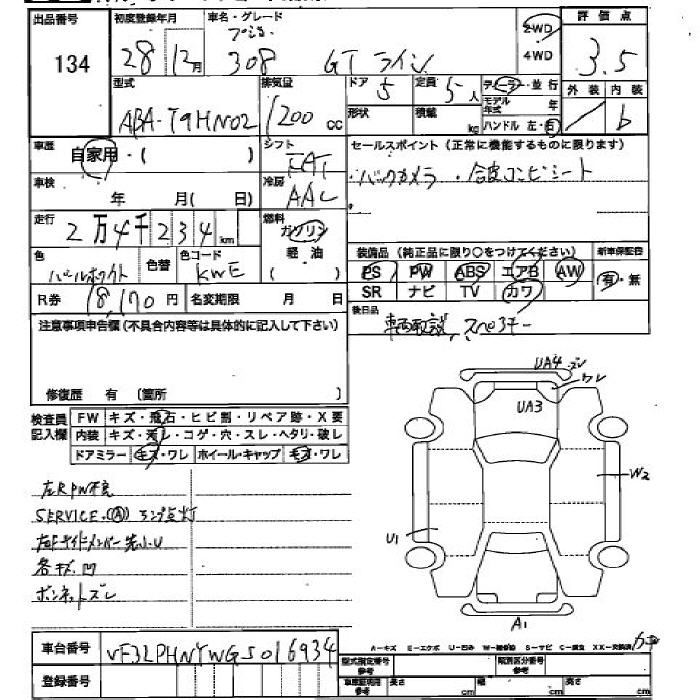 出品番号 初度登録年月 車名・グレード 2WD 評価点
134 28 12月 プジョー 308 GT ライン 4WD 3.5
型式 排気量 ドア 5 定員 5人 ディーラー・並行 外装 内装
ABA-T9HN02 1200cc 形状 積載 kg モデル年式 年 b
ハンドル 左・右
車歴 自家用・( ) シフト FAT セールスポイント(正常に機能するものに限ります)
車検 年 月( 日) 冷房 AAC ・バックカメラ ・合皮コンビシート
走行 2万4千234km 燃料 ガソリン
軽油
( )
色 パールホワイト 色替 色コード KWE 装備品(純正品に限り○をつけてください) 新車保証書
PS PW ABS エアB AW 有・無
R券 18,170円 名変期限 月 日 SR ナビ TV カワ
注意事項申告欄(不具合内容等は具体的に記入して下さい) 後日品 車両取説 スペアキー
修復歴 有 〔箇所 〕
検査員 記入欄 FW キズ・飛石・ヒビ割・リペア跡・X要
内装 キズ・汚レ・コゲ・穴・スレ・ヘタリ・破レ
ドアミラー キズ・ワレ ホイール・キャップ キズ・ワレ
左RPW不良
SERVICE・Ⓐランプ点灯
左Fサイドメンバー先小U
各キズ凹
ボンネットズレ
UA4 ズレ
ワレ
UA3
W2
U1
A1
A-キズ E-エクボ U-凹み W-補修跡 S-サビ C-腐食 XX-交換済
車台番号 VF3LPHNYWGS016934
型式指定番号 参考 類別区分番号 参考
登録番号 車庫証明用 参考 長さ cm 幅 cm 高さ cm